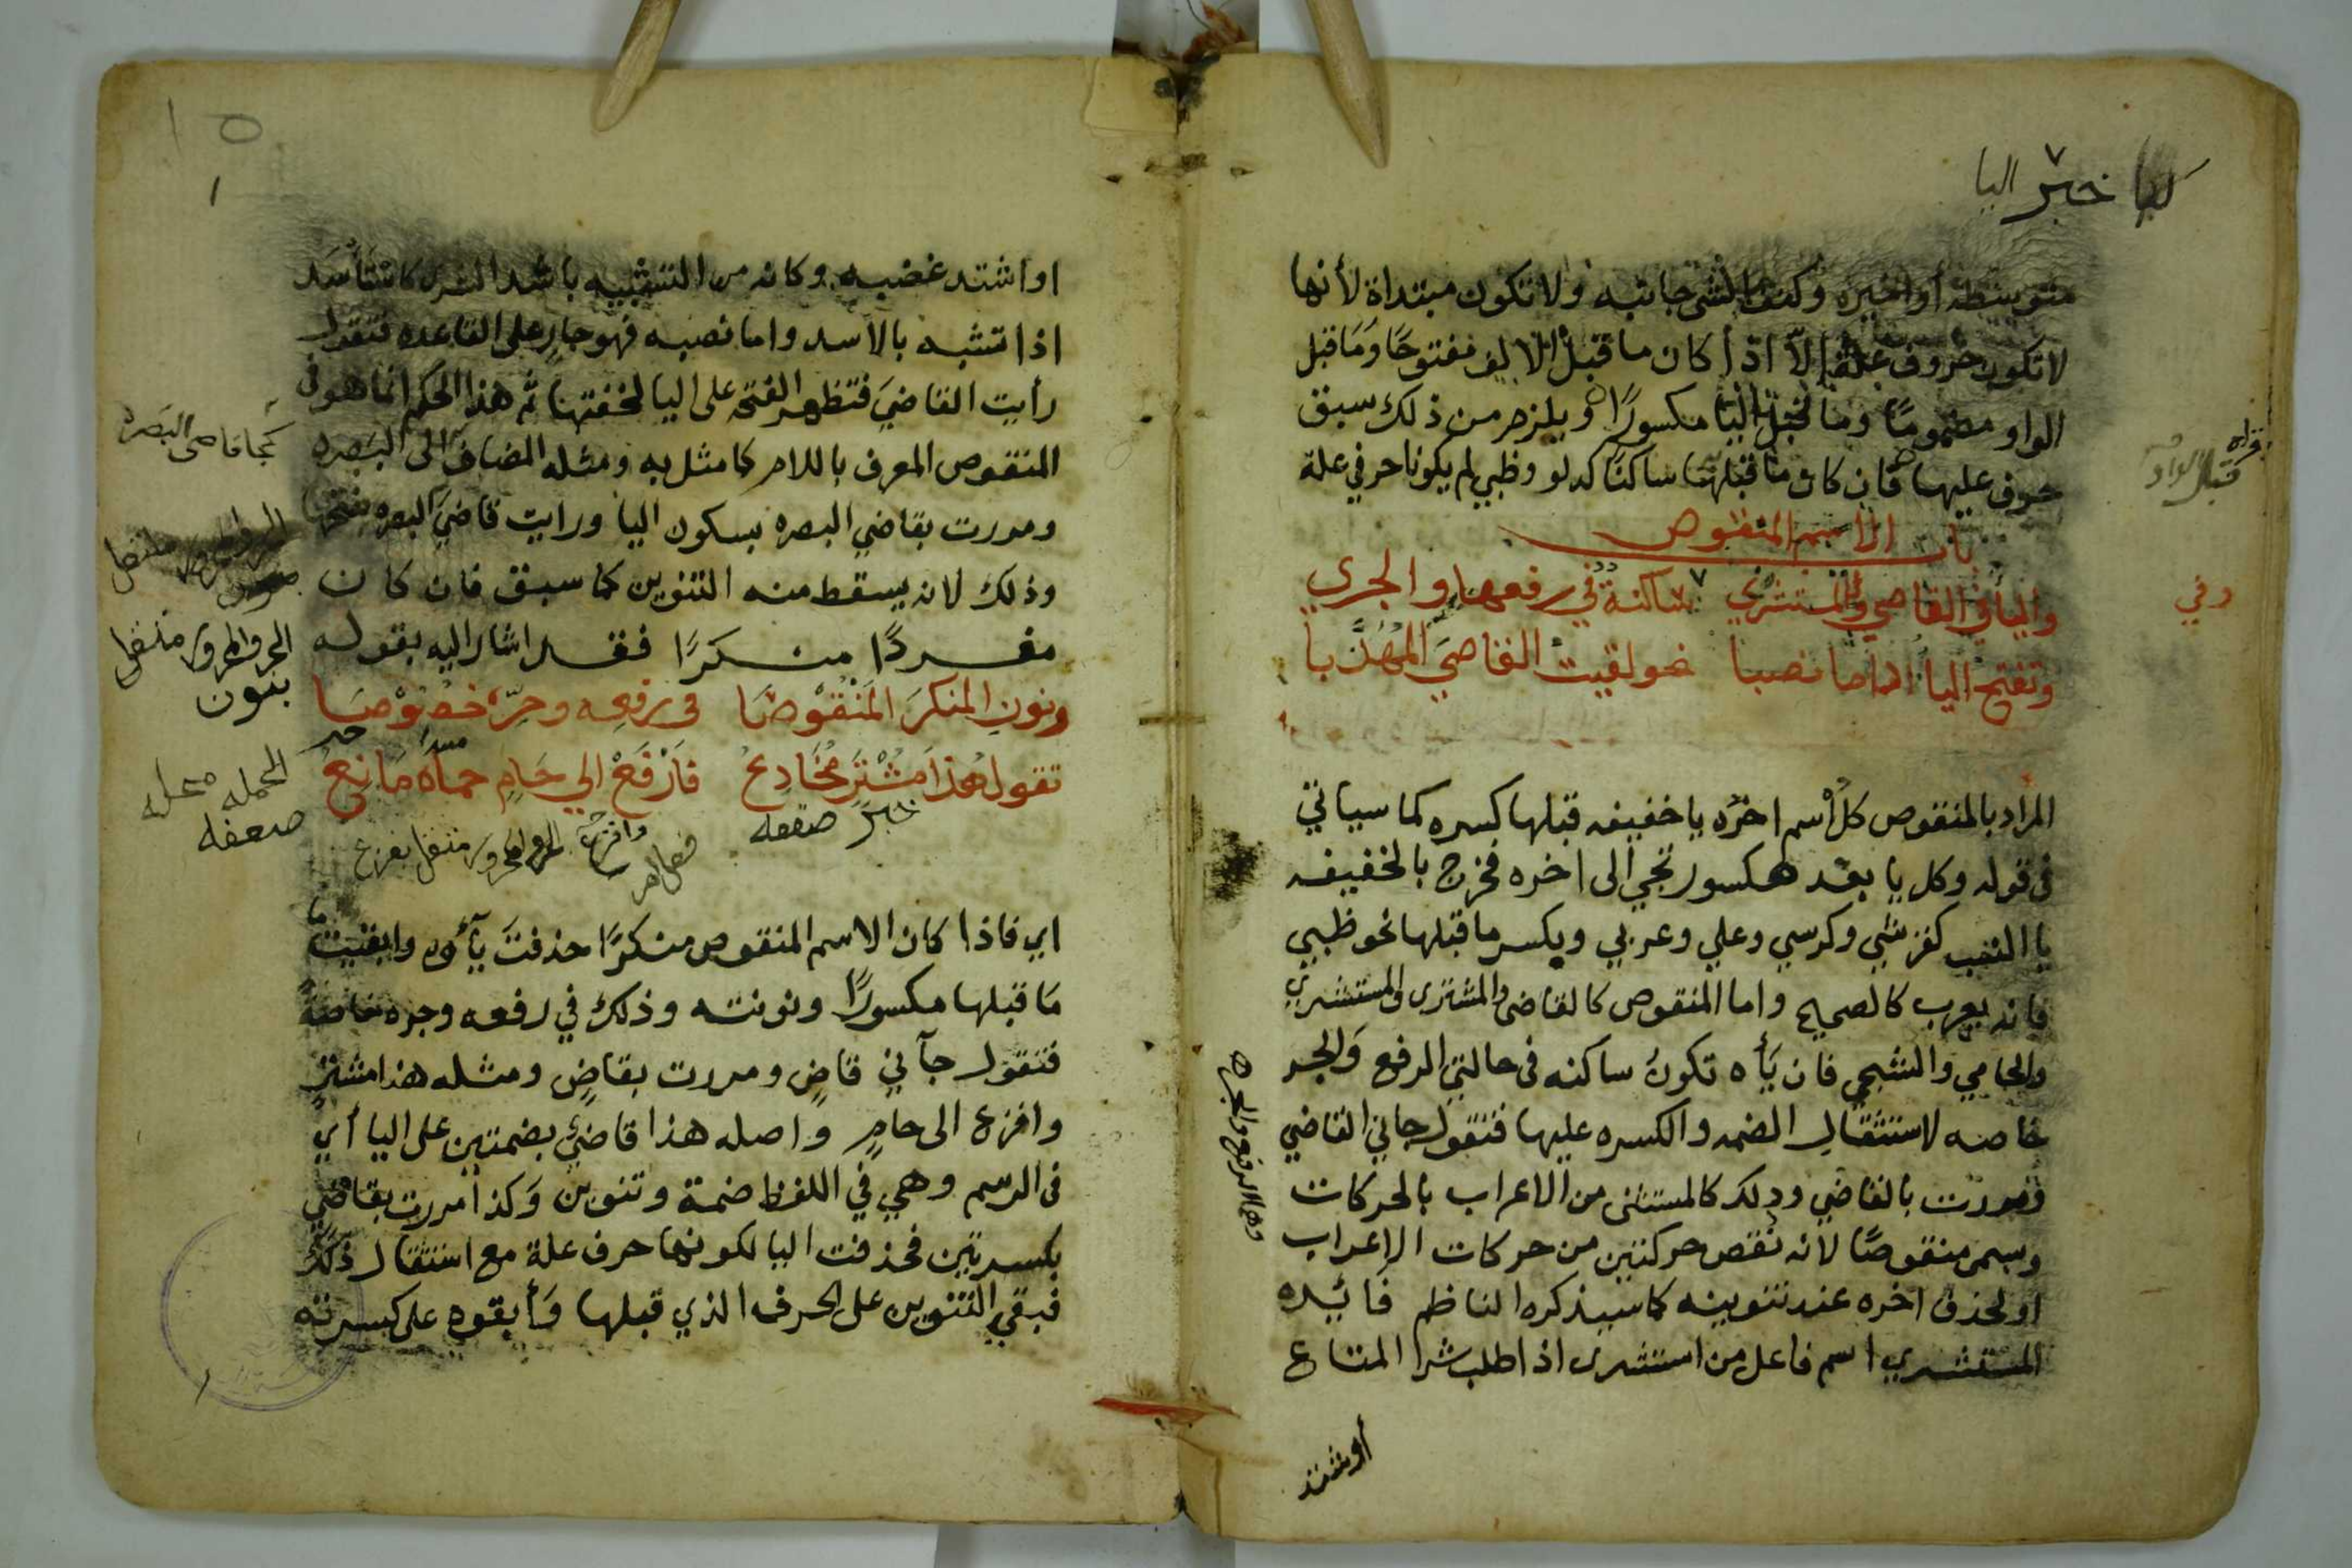 خبر اليا
متوسطة أو أخيره وكنفا الشي جانبه ولا تكون مبتداة لأنها
لا تكون حروف علة إلا اذا كان ما قبل الالف مفتوحًا وَمَا قبل
الواو مضمومًا وما قبل اليا مكسورًا ويلزم من ذلك سبق
حرف عليها فان كان ما قبلهما ساكنًا كدلو وظبي لم يكونا حرفي علة
باب الاسم المنقوص
واليأ في القاضي وفي المستشري ساكنة في رفعها والجري
وتفتح اليأ اذا ما نصبا نحو لقيت القاضيَ المهُذَّبا
المراد بالمنقوص كل أسم اخرُه يا خفيفه قبلها كسره كما سياتي
في قوله وكل يا بعد مكسور تجي الى اخره فخرج بالخفيفه
يا النسب كقرشي وكرسي وعلي وعربي وبكسر ما قبلها نحو ظبي
فانه يعرب كالصحيح واما المنقوص كالقاضي والمشترى والمستشري
والحامي والشجي فان يَأه تكونُ ساكنه في حالتي الرفع وَالجر
خاصه لاستثقالِ الضمه والكسره عليها فتقول جاني القاضي
ومررت بالقاضي وذلك كالمستثنى من الاعراب بالحركات
وسمى منقوصًا لانه نقص حركتين من حركات الاعراب
او لحذف اخره عند تنوينه كما سيذكره الناظم فائيده
المستشري اسم فاعل من استشرى اذا طلب شرا المتاع
وهما الرفع والجر
أو شتد
او اشتد غضبه وكانه من التشبيه باسد الشرى كانتأسَد
اذا تشبه بالأسد واما نصبه فهو جارٍ على القاعده فتقول
رأيت القاضيَ فتظهر الفتحه على اليا لخفتها ثم هذا الحكم انما هو في
المنقوص المعرف باللام كما مثل به ومثله المضاف الى البَصره
ومررت بقاضي البصره بسكون اليا ورايت قاضيَ البصره بفتحها
وذلك لانه يسقط منه التنوين كما سبق فان كان
مفردًا منكرًا فقد اشار اليه بقوله
ونونِ المنكرَ المَنْقُوْصَا في رفعِه وجرّه خصُوْصَا
تقول هذا مشْتَرٍ مُخَادِعُ فَافْزَعْ الي حَامٍ حمَاه مَانِعُ
خبر صفه
فعل امر
كجا قاضي البَصره
الجر والمجرور متعلق
بنون
الجمله معله
اي فاذا كان الاسم المنقوص منكرًا حذفتَ يآؤه وابقيت
مَا قبلها مكسورًا ونونته وذلك في رفعه وجره خاصةً
فتقول جآني قاضٍ ومررت بقاضٍ ومثله هذا مشترٍ
وافزع الى حامٍ واصله هذا قاضيٌ بضمتين على اليا أي
في الرسم وهي في اللفظ ضمة وتنوين وَكذا مررت بقاضيٍ
بكسرتين فحذفت اليا لكونها حرف علة مع استثقال ذلك
فبقي التنوين على الحرف الذي قبلها وَأبقوه على كسرته